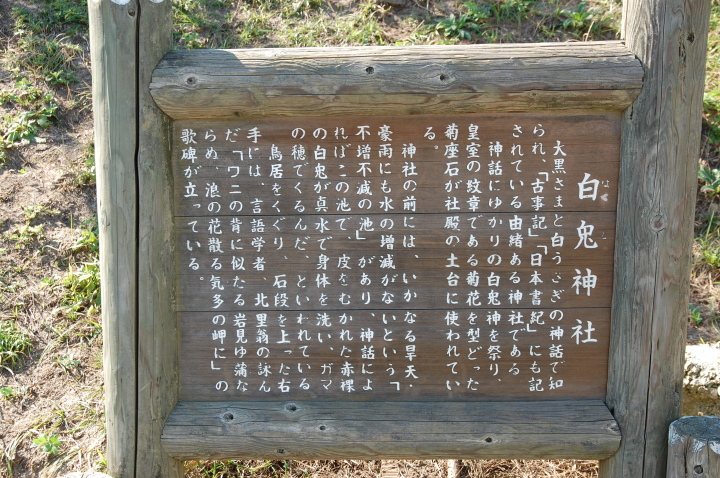 白兎神社
はく と
大黒さまと白うさぎの神話で知
られ、「古事記」「日本書記」にも記
されている由緒ある神社である
神話にゆかりの白兎神を祭り、
皇室の紋章である菊花を型どった
菊座石が社殿の土台に使われてい
る。
神社の前には、いかなる旱天・
豪雨にも水の増減がないという、「
不増不減の池」があり、神話によ
ればこの池で、皮をむかれた赤裸
の白兎が真水で身体を洗い、ガマ
の穂でくるんだ、といわれている
鳥居をくぐり、石段を上った右
手には、言語学者、北里翁の詠ん
だ「ワニの背に似たる岩見ゆ蒲な
らめ、浪の花散る気多の岬に」の
歌碑が立っている。